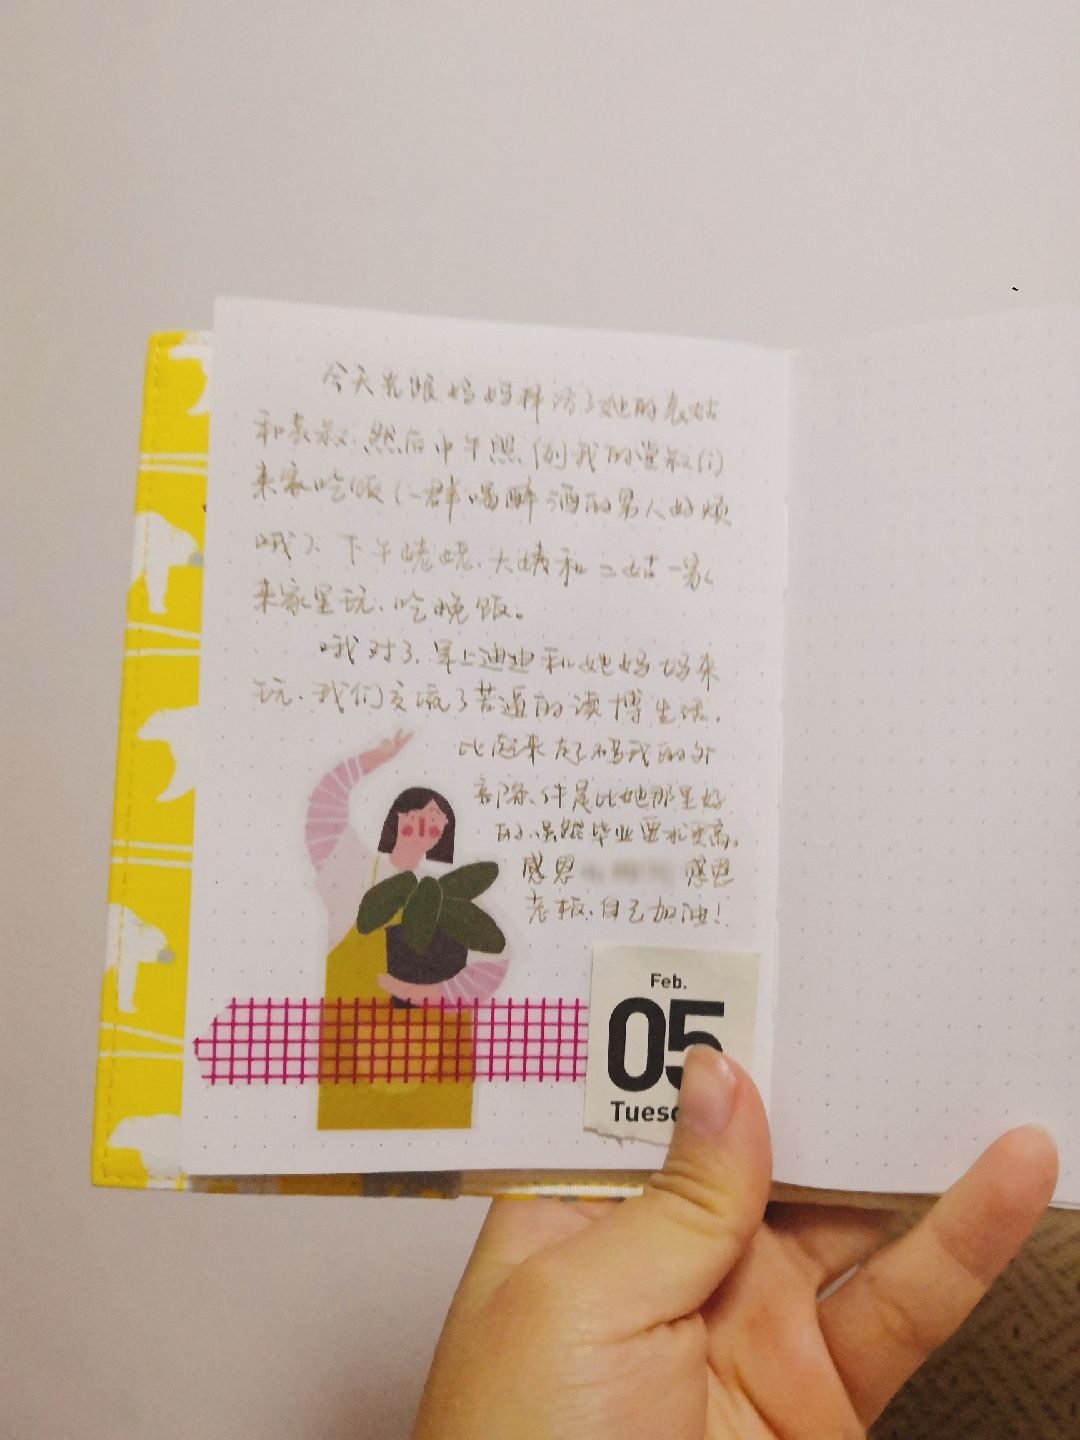 今天先跟妈妈拜访了她的表姑
和表叔、然后中午照例我的堂叔们
来家吃饭（一群喝醉酒的男人好烦
哦）、下午姥姥、大姨和二姑一家
来家里玩、吃晚饭。
哦对了、早上迪迪和她妈妈来
玩、我们交流了苦逼的读博生活，
比起来起码我的外
部条件是比她那里好
的、虽然毕业要求更高。
感恩 感恩
老板、自己加油！
Feb.
05
Tues